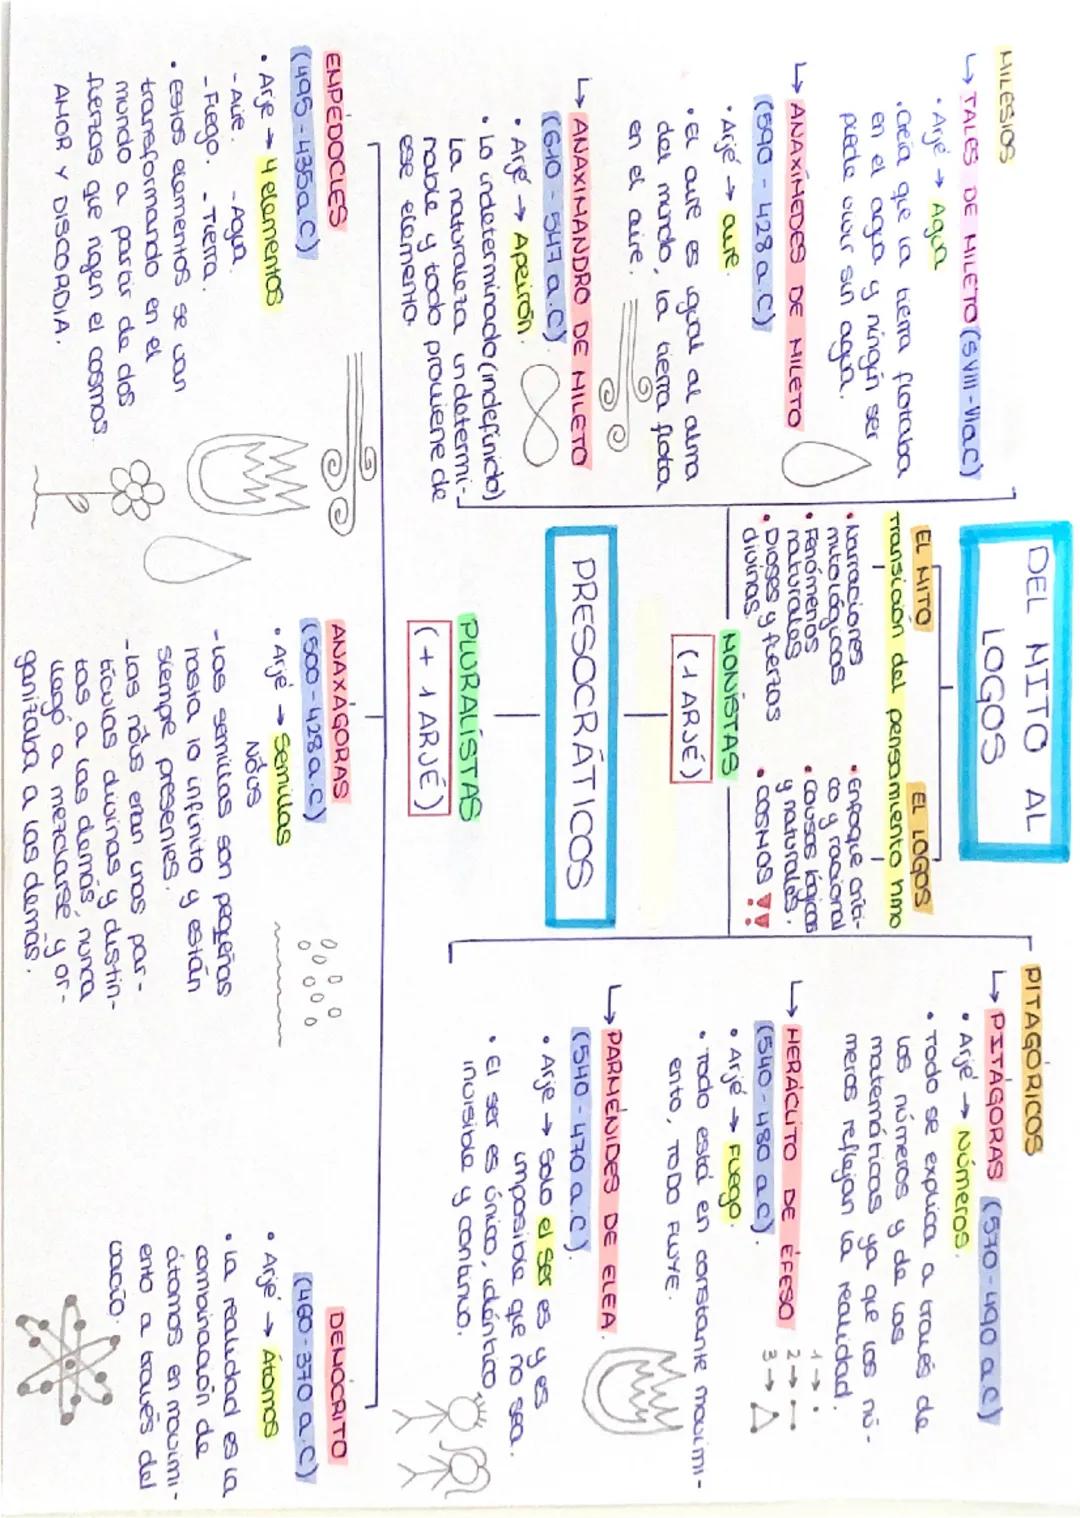 DEL MITO AL
LOGOS
EL MITO
EL LOGOS
Transición del pensamiento hmo
• Narraciones
mitológicas
• Fenómenos
naturales
• Dioses y fuerzas
divinas.
• Enfoque críti-
co y racional
• Causas lógicas
y naturales.
• COSMOS !!
MONISTAS
(1 ARJÉ)
PRESOCRÁTICOS
PLURALISTAS
(+ 1 ARJÉ)
MILESIOS
↳ TALES DE MILETO (S VIII-VIaC)
• Arjé → Agua
• Creía que la tierra flotaba
en el agua y ningún ser
puede vivir sin agua.
↳ ANAXÍMEDES DE MILETO
(590 - 428 a.C)
• Arjé → aire.
• El aire es igual al alma
del mundo, la tierra flota
en el aire.
↳ ANAXIMANDRO DE MILETO
(610 - 547 a.C).
• Arjé → Apeirón.
• Lo indeterminado (indefinido)
La naturaleza indetermi-
nable y todo proviene de
ese elemento.
PITAGÓRICOS
↳ PITÁGORAS (570-490 a.C)
• Arjé → Números.
• Todo se explica a través de
los números y de las
matemáticas ya que los nú-
meros reflejan la realidad.
1 → •
2 → —
3 → △
↳ HERÁCLITO DE ÉFESO
(540-480 a.C).
• Arjé → Fuego.
• Todo está en constante movimi-
ento, TODO FLUYE.
↳ PARMÉNIDES DE ELEA.
(540 - 470 a.C).
• Arjé → Solo el ser es y es
imposible que no sea.
• El ser es único, idéntico
invisible y continuo.
EMPÉDOCLES
(495 - 435 a.C)
• Arjé → 4 elementos
- Aire. - Agua.
- Fuego. - Tierra.
• Estos elementos se van
transformando en el
mundo a partir de dos
fuerzas que rigen el cosmos.
AMOR Y DISCORDIA.
ANAXÁGORAS
(500 - 428 a.C)
• Arjé → Semillas
Nóus
- Las semillas son pequeñas
hasta lo infinito y están
siempre presentes.
- Las nóus eran unas par-
tículas divinas y distin-
tas a las demás, nunca
llegó a mezclarse y or-
ganizaba a las demás.
DEMÓCRITO
(460-370 a.C)
• Arjé → Átomos
• La realidad es la
combinación de
átomos en movimi-
ento a través del
vacío.